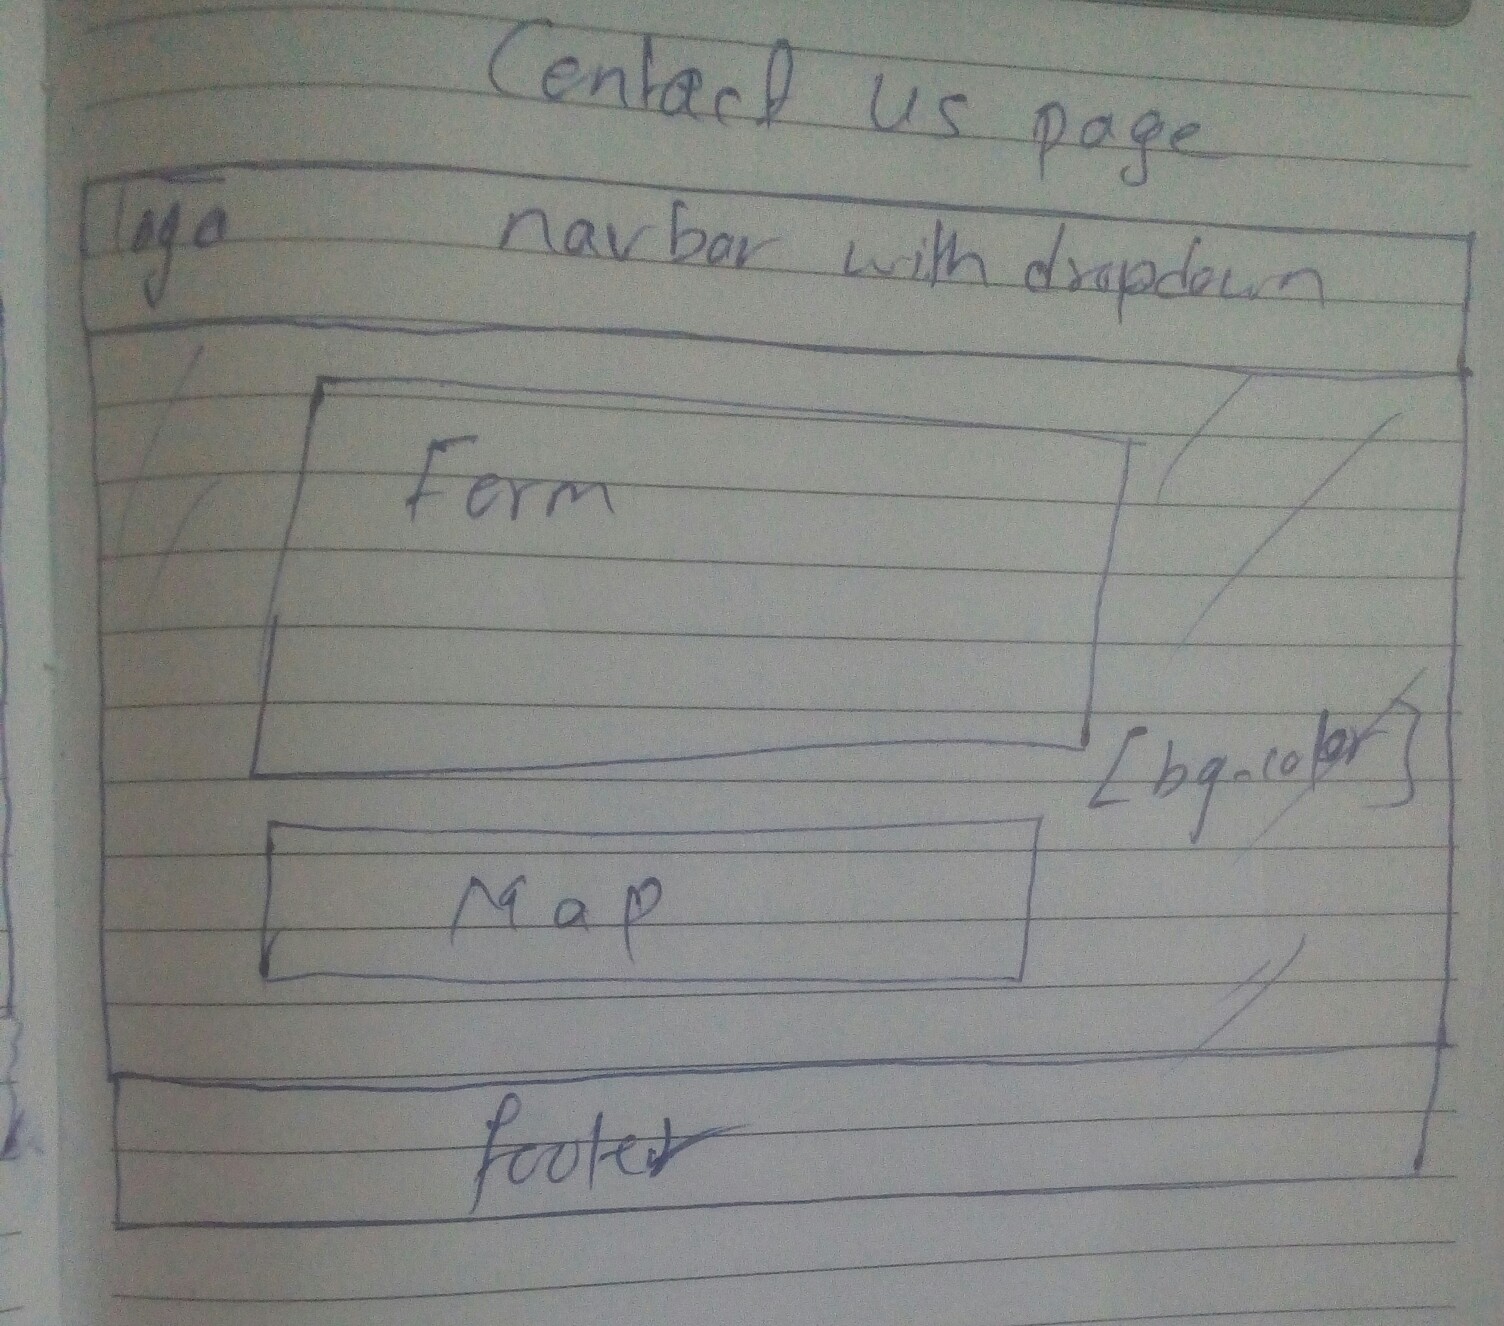 Contact us page
logo navbar with dropdown
Form
[bg-color]
Map
footer